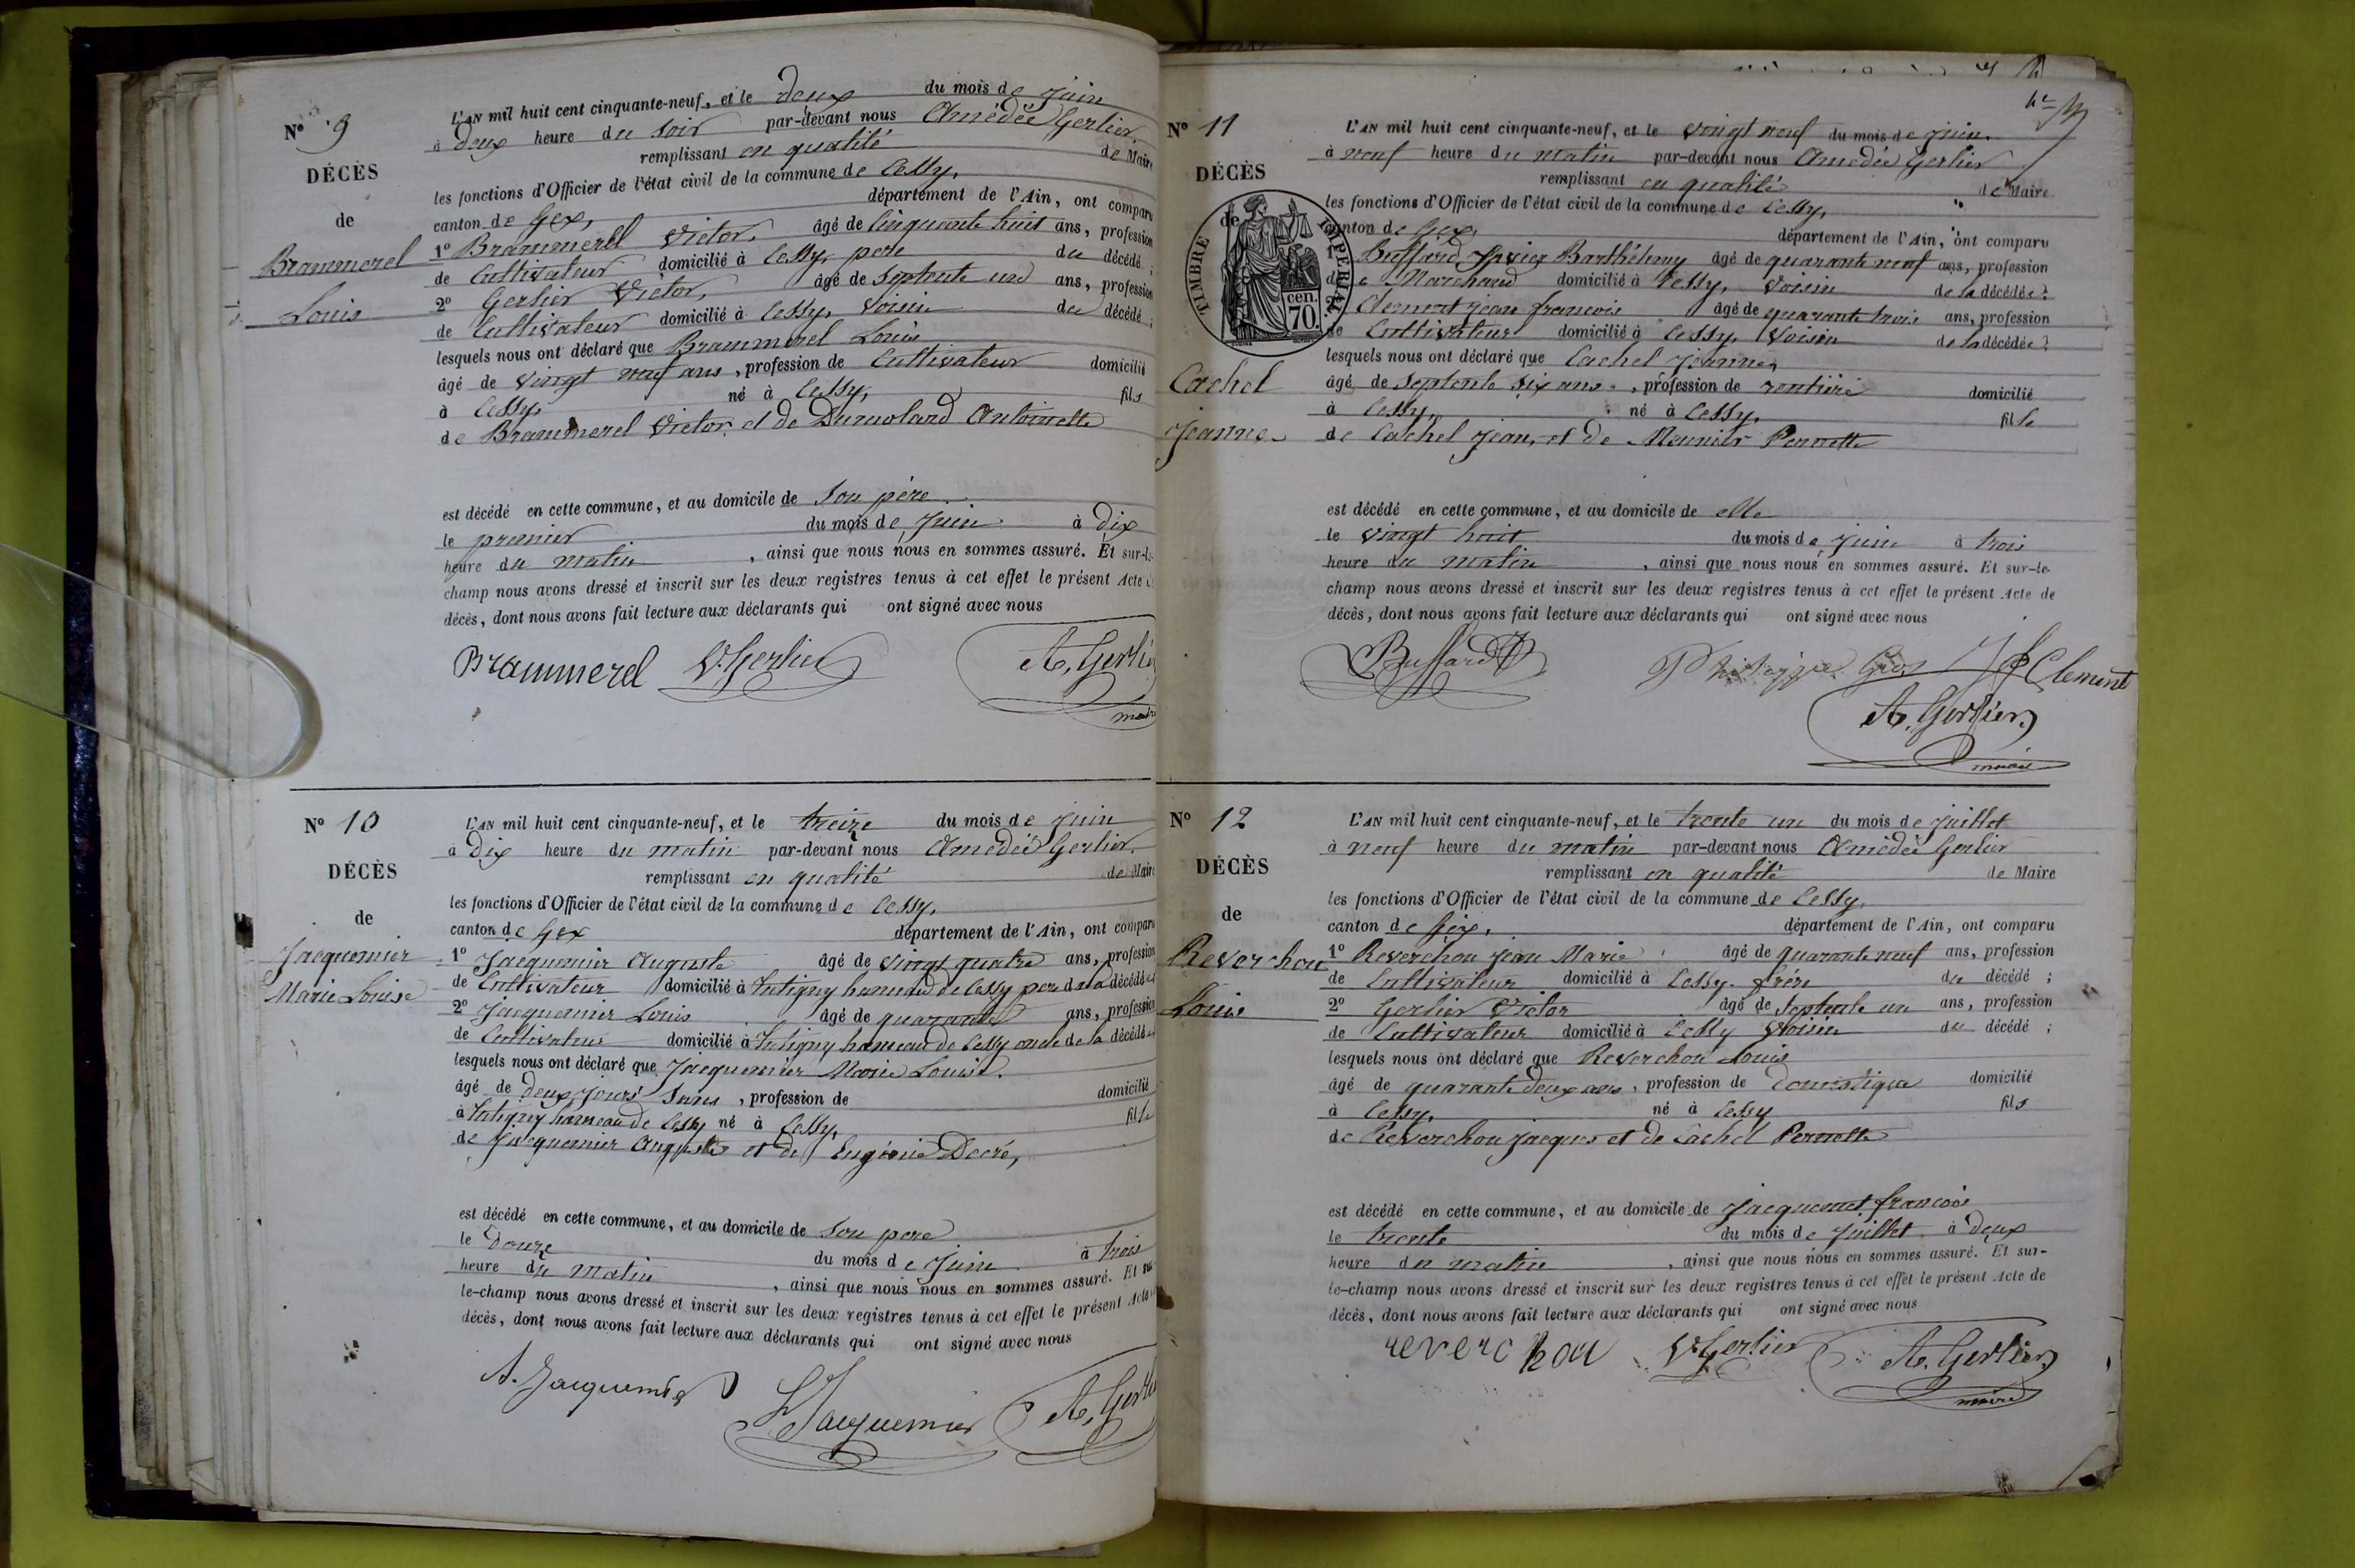 Nº 9
DÉCÈS
de
Brammerel
Louis
L'AN mil huit cent cinquante-neuf, et le deux du mois de juin
à deux heure du soir par-devant nous Amédée Gerlier
remplissant en qualité de Maire
les fonctions d'Officier de l'état civil de la commune de Cessy,
canton de Gex, département de l'Ain, ont comparu
1º Brammerel Victor, âgé de cinquante huit ans, profession
de Cultivateur domicilié à Cessy, père du décédé ;
2º Gerlier Victor, âgé de septente un ans, profession
de Cultivateur domicilié à Cessy, voisin du décédé ;
lesquels nous ont déclaré que Brammerel Louis
âgé de vingt neuf ans, profession de Cultivateur domicilié
à Cessy, né à Cessy, fils
de Brammerel Victor et de Dumolard Antoinette
est décédé en cette commune, et au domicile de son père
le premier du mois de Juin à dix
heure du matin, ainsi que nous nous en sommes assuré. Et sur-le-
champ nous avons dressé et inscrit sur les deux registres tenus à cet effet le présent Acte de
décès, dont nous avons fait lecture aux déclarants qui ont signé avec nous
Brammerel V. Gerlier A. Gerlier
maire
Nº 10
DÉCÈS
de
Jacquemier
Marie Louise
L'AN mil huit cent cinquante-neuf, et le treize du mois de juin
à dix heure du matin par-devant nous Amédée Gerlier,
remplissant en qualité de Maire
les fonctions d'Officier de l'état civil de la commune de Cessy,
canton de Gex département de l'Ain, ont comparu
1º Jacquemier Auguste âgé de vingt quatre ans, profession
de Cultivateur domicilié à hameau de Cessy père de la décédée
2º Jacquemier Louis âgé de quarante ans, profession
de Cultivateur domicilié à hameau de Cessy oncle de la décédée
lesquels nous ont déclaré que Jacquemier Marie Louise.
âgé de deux jours sans, profession de domicilié
à hameau de Cessy né à Cessy, fille
de Jacquemier Auguste et de Eugénie Decré,
est décédé en cette commune, et au domicile de son père
le douze du mois de Juin à trois
heure du matin, ainsi que nous nous en sommes assuré. Et sur-
le-champ nous avons dressé et inscrit sur les deux registres tenus à cet effet le présent Acte de
décès, dont nous avons fait lecture aux déclarants qui ont signé avec nous
A. Jacquemier L. Jacquemier A. Gerlier
Nº 11
DÉCÈS
de
TIMBRE IMPÉRIAL
70 cen.
Cachel
Jeanne
L'AN mil huit cent cinquante-neuf, et le vingt neuf du mois de juin.
à neuf heure du matin par-devant nous Amédée Gerlier
remplissant en qualité de Maire
les fonctions d'Officier de l'état civil de la commune de Cessy,
canton de Gex, département de l'Ain, ont comparu
1º Buffard Barthélemy âgé de quarante neuf ans, profession
de Marchand domicilié à Cessy, voisin de la décédée ;
2º Clement jean francois âgé de quarante trois ans, profession
de Cultivateur domicilié à Cessy, Voisin de la décédée ;
lesquels nous ont déclaré que Cachel Jeanne,
âgé de septente six ans, profession de rentière domicilié
à Cessy, né à Cessy, fille
de Cachel Jean, et de Meunier Pernette
est décédé en cette commune, et au domicile de elle
le vingt huit du mois de juin à trois
heure du matin, ainsi que nous nous en sommes assuré. Et sur-le-
champ nous avons dressé et inscrit sur les deux registres tenus à cet effet le présent Acte de
décès, dont nous avons fait lecture aux déclarants qui ont signé avec nous
Buffard JF Clement
A. Gerlier
maire
Nº 12
DÉCÈS
de
Reverchon
Louis
L'AN mil huit cent cinquante-neuf, et le trente un du mois de juillet
à neuf heure du matin par-devant nous Amédée Gerlier
remplissant en qualité de Maire
les fonctions d'Officier de l'état civil de la commune de Cessy,
canton de Gex, département de l'Ain, ont comparu
1º Reverchon Jean Marie âgé de quarante neuf ans, profession
de Cultivateur domicilié à Cessy. frère du décédé ;
2º Gerlier Victor âgé de septente un ans, profession
de Cultivateur domicilié à Cessy Voisin du décédé ;
lesquels nous ont déclaré que Reverchon Louis
âgé de quarante deux ans, profession de Domestique domicilié
à Cessy, né à Cessy fils
de Reverchon Jacques et de Cachel Pernette
est décédé en cette commune, et au domicile de Jacquemet francois
le trente du mois de Juillet à deux
heure du matin, ainsi que nous nous en sommes assuré. Et sur-
le-champ nous avons dressé et inscrit sur les deux registres tenus à cet effet le présent Acte de
décès, dont nous avons fait lecture aux déclarants qui ont signé avec nous
reverchon V. Gerlier A. Gerlier
maire